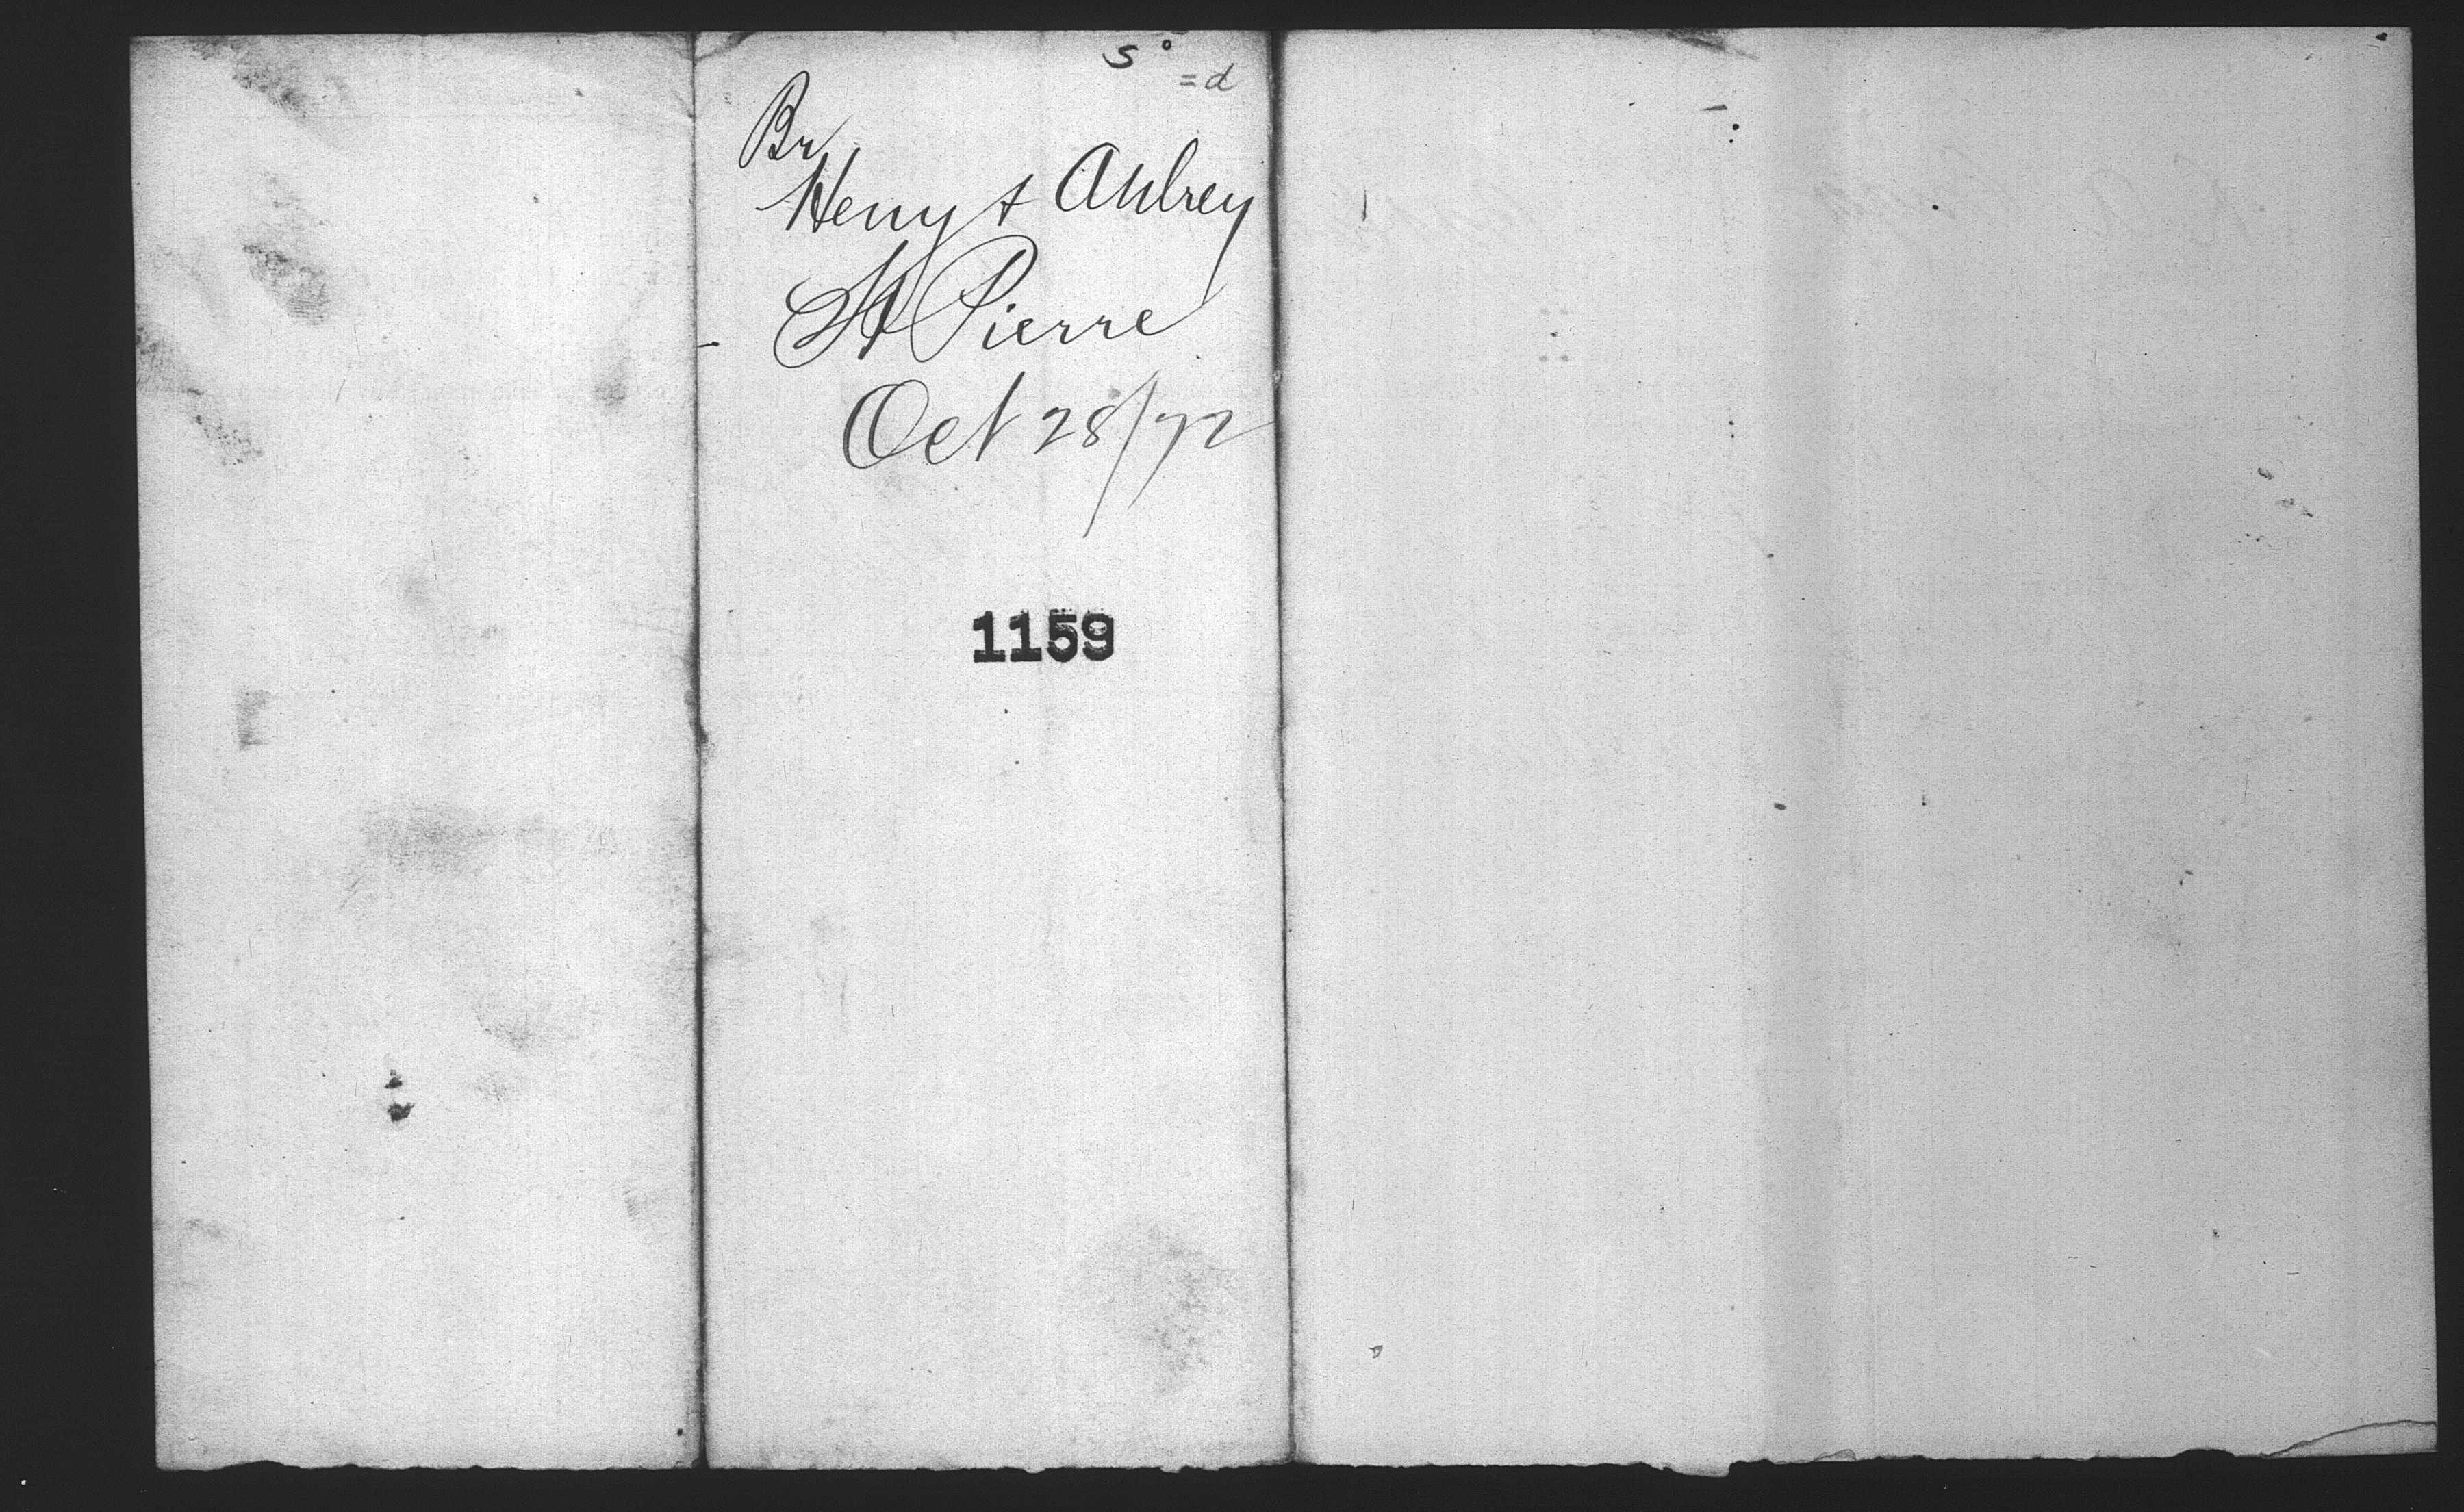 S°
=d
Br
Henry & Aubrey
St Pierre
Oct 28/72
1159